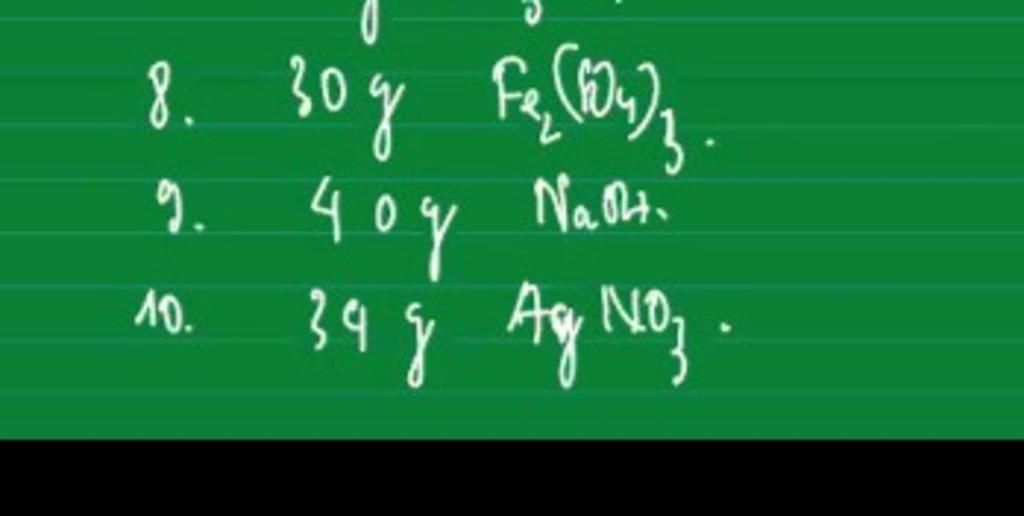 8. 30 g Fe₂(SO₄)₃.
9. 40 g NaOH.
10. 34 g AgNO₃.